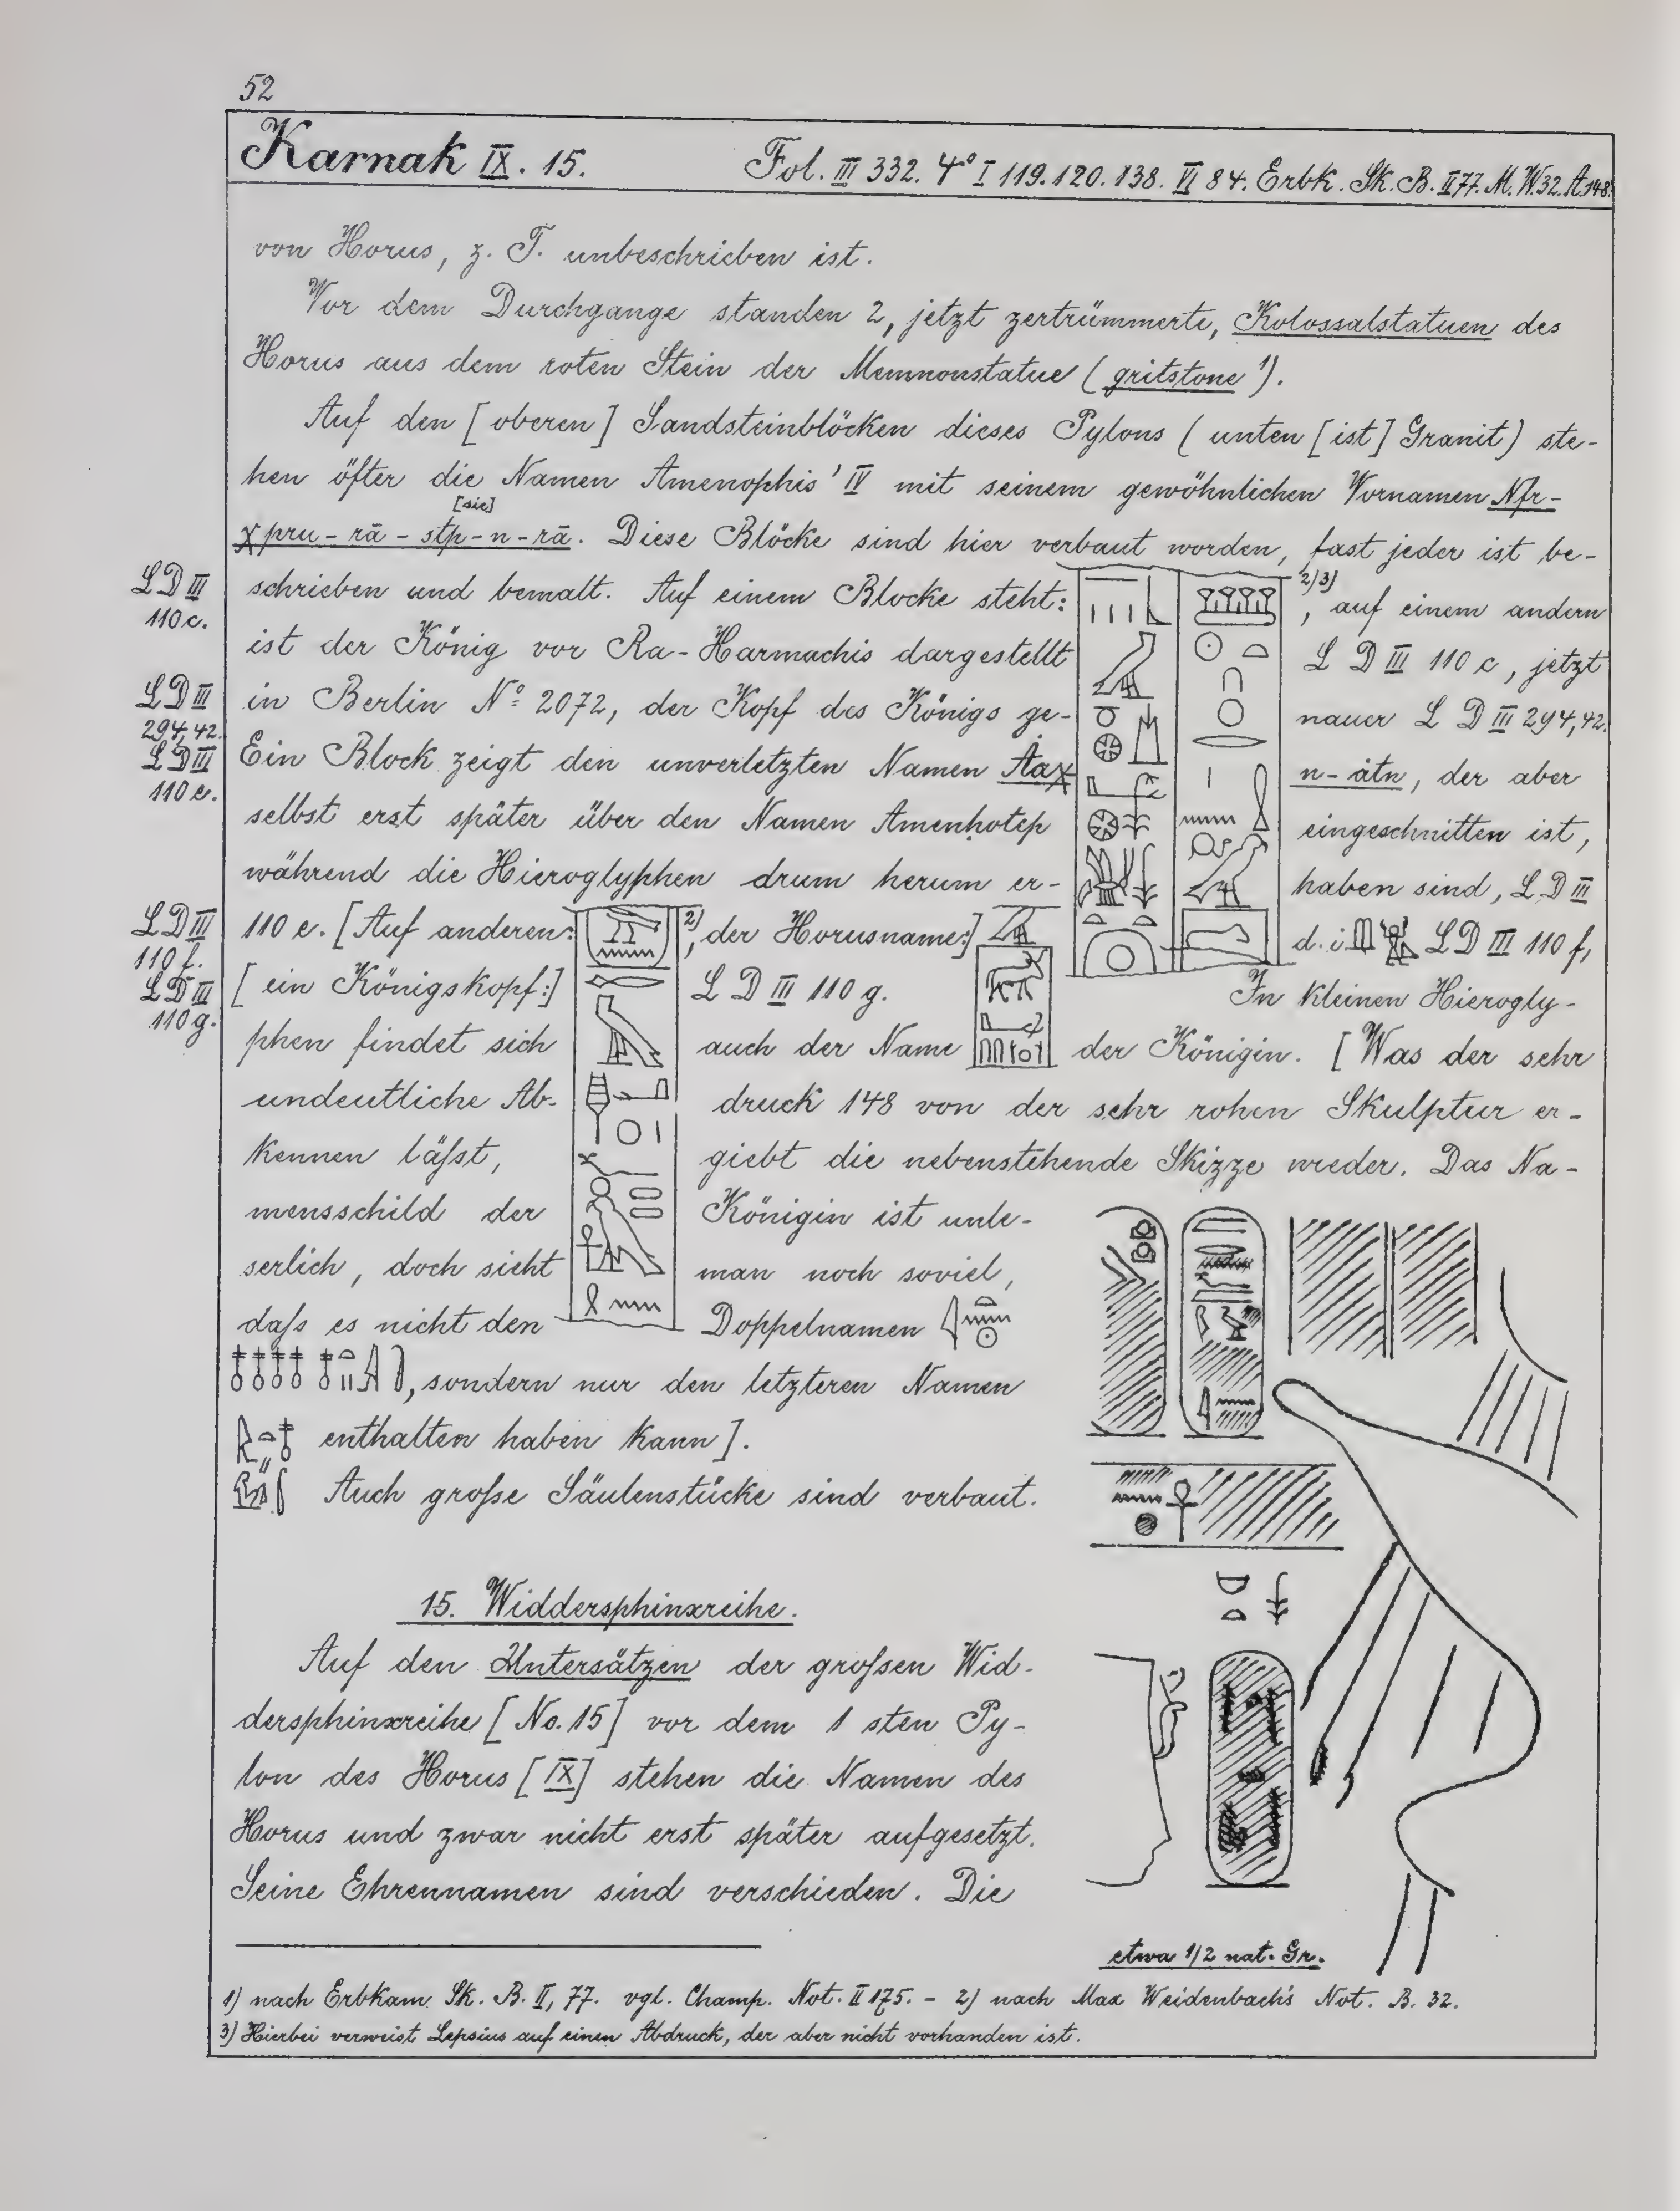 52
Karnak IX. 15. Fol. III 332. 4° I 119. 120. 138. VI 84. Erbk. Sk. B. II 77. M. W. 32. A. 148.
von Horus, z. T. unbeschrieben ist.
Vor dem Durchgange standen 2, jetzt zertrümmerte, Kolossalstatuen des
Horus aus dem roten Stein der Memnonstatue (gritstone 1).
Auf den [oberen] Sandsteinblöcken dieses Pylons (unten [ist] Granit) ste-
hen öfter die Namen Amenophis' IV mit seinem gewöhnlichen Vornamen Nfr-
[sic]
χpru-rā-stp-n-rā. Diese Blöcke sind hier verbaut worden, fast jeder ist be-
LD III 110 c.
schrieben und bemalt. Auf einem Blocke steht: 2) 3), auf einem andern
ist der König vor Ra-Harmachis dargestellt L D III 110 c, jetzt
LD III 294, 42.
in Berlin No. 2072, der Kopf des Königs ge- nauer L D III 294, 42.
LD III 110 e.
Ein Block zeigt den unverletzten Namen Aaχ n-åtn, der aber
selbst erst später über den Namen Amenhotep eingeschnitten ist,
während die Hieroglyphen drum herum er- haben sind, L D III
LD III 110 f.
110 e. [Auf anderen: 2), der Horusname:] d. i. L D III 110 f,
LD III 110 g.
[ein Königskopf:] L D III 110 g. In kleinen Hierogly-
phen findet sich auch der Name der Königin. [Was der sehr
undeutliche Ab- druck 148 von der sehr rohen Skulptur er-
kennen läſst, giebt die nebenstehende Skizze wieder. Das Na-
mensschild der Königin ist unle-
serlich, doch sieht man noch soviel,
daſs es nicht den Doppelnamen
, sondern nur den letzteren Namen
enthalten haben kann].
Auch groſse Säulenstücke sind verbaut.
15. Widdersphinxreihe.
Auf den Untersätzen der groſsen Wid-
dersphinxreihe [No. 15] vor dem 1 sten Py-
lon des Horus [IX] stehen die Namen des
Horus und zwar nicht erst später aufgesetzt.
Seine Ehrennamen sind verschieden. Die
etwa 1/2 nat. Gr.
1) nach Erbkam Sk. B. II, 77. vgl. Champ. Not. II 175. - 2) nach Max Weidenbach's Not. B. 32.
3) Hierbei verweist Lepsius auf einen Abdruck, der aber nicht vorhanden ist.